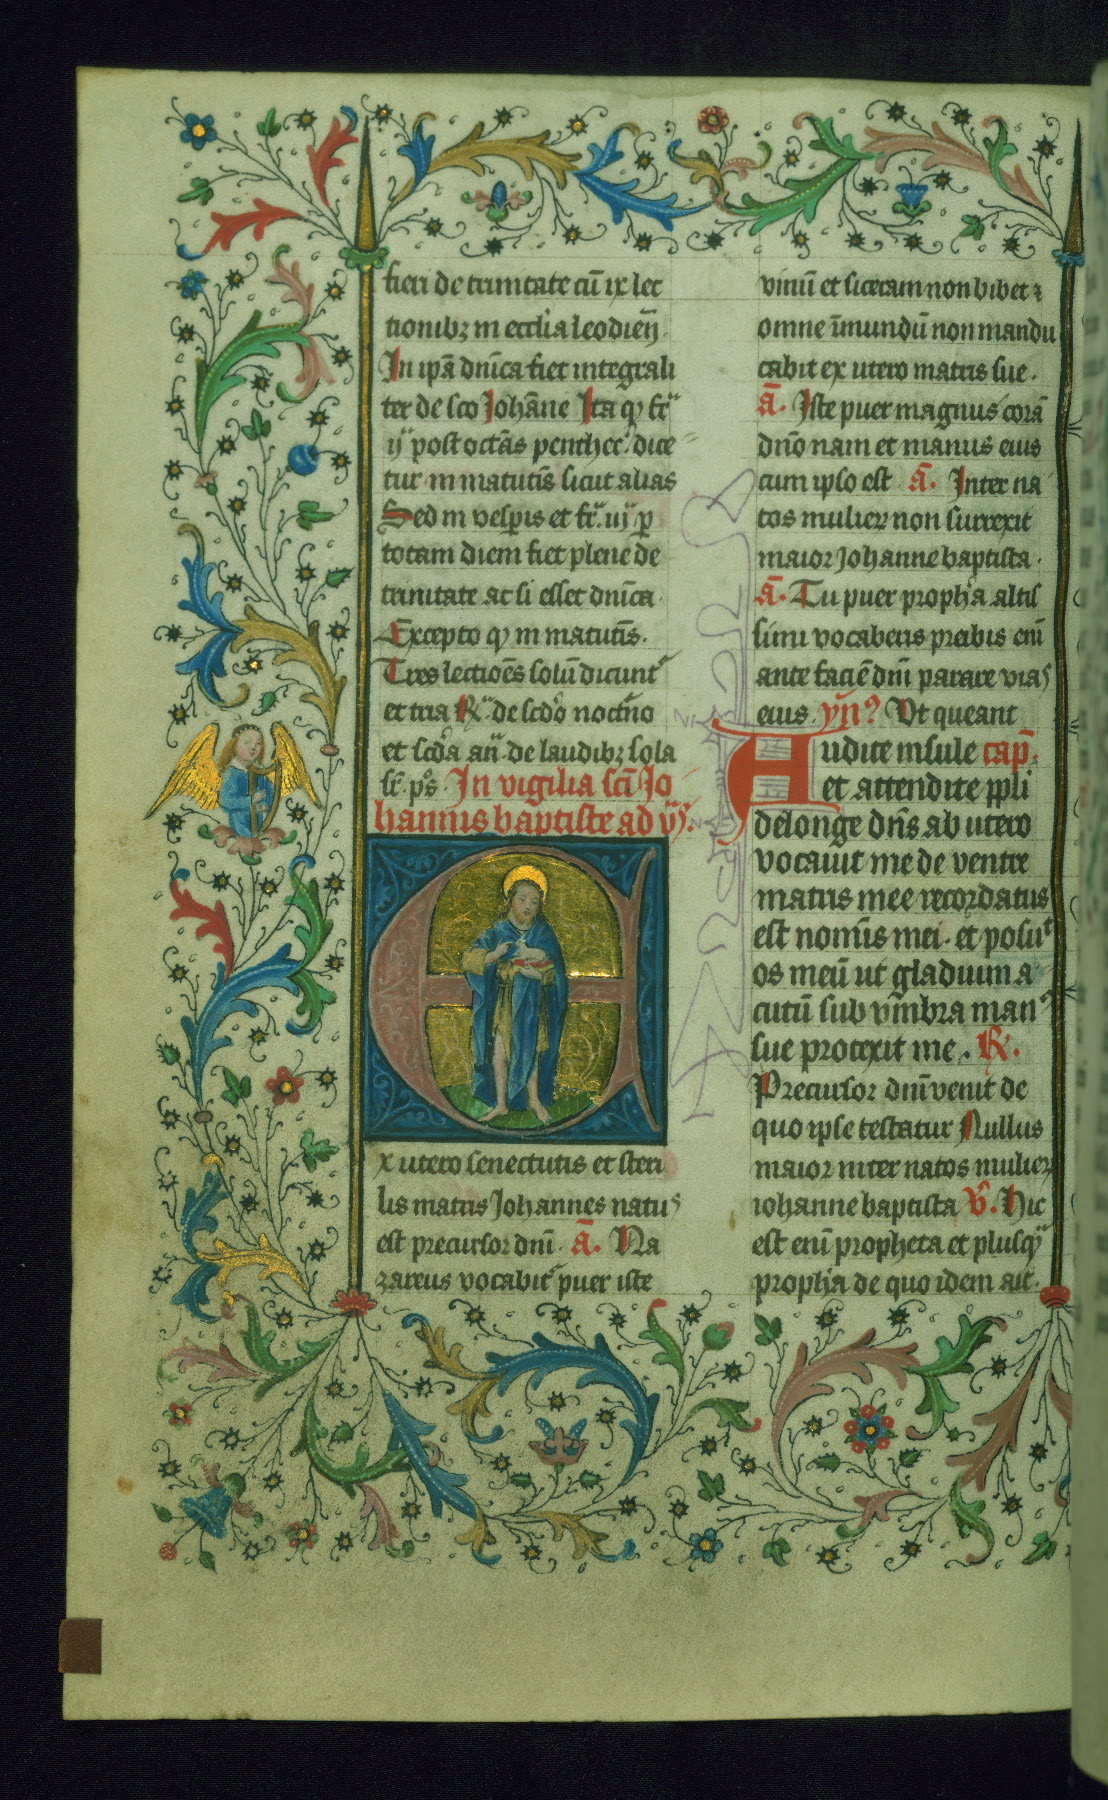 fieri de trinitate cū ix lec
tionibꝫ in ecclīa leodieñ.
In ipā dnīca fiet integrali
ter de sco Johāne Ita ꝙ fr̄
ij post octās penthec̄. dice
tur in matutīs sicut alias
Sed in vesꝑis et fr̄. iij ꝑ
totam diem fiet plene de
trinitate ac si esset dnīca
Excepto ꝙ in matutīs.
Tres lectiōes solū dicunt᷑
et tria ℟ de scdo noct̄no
et scdā añ. de laudibꝫ sola
In vigilia sc̄i Jo
hannis baptiste ad
Ex utero senectutis et steri
lis matris Johannes natꝰ
est precursor dn̄i. ā. Na
zareus vocabit᷑ puer iste
vinū et siceram non bibet ⁊
omne īmundū non mandu
cabit ex utero matris sue.
ā. Iste puer magnus corā
dn̄o nam et manus eius
cum ipso est ā. Inter na
tos mulierꝝ non surrexit
maior Johanne baptista.
ā. Tu puer prophā altis
simi vocaberis preibis enī
ante faciē dn̄i parare vias
eius. yñ? Ut queant
Audite insule cap̄.
et attendite ꝑpli
de longe dn̄s ab utero
vocavit me de ventre
matris mee recordatus
est nomīs mei. et posuᵗ
os meū ut gladium a
cutū sub vmbra manꝰ
sue protexit me. ℟.
Precursor dn̄i venit de
quo ipse testatur Nullus
maior inter natos mulierꝝ
iohanne baptista ℣. Hic
est enī propheta et plusꝙ̄
prophā de quo idem ait.